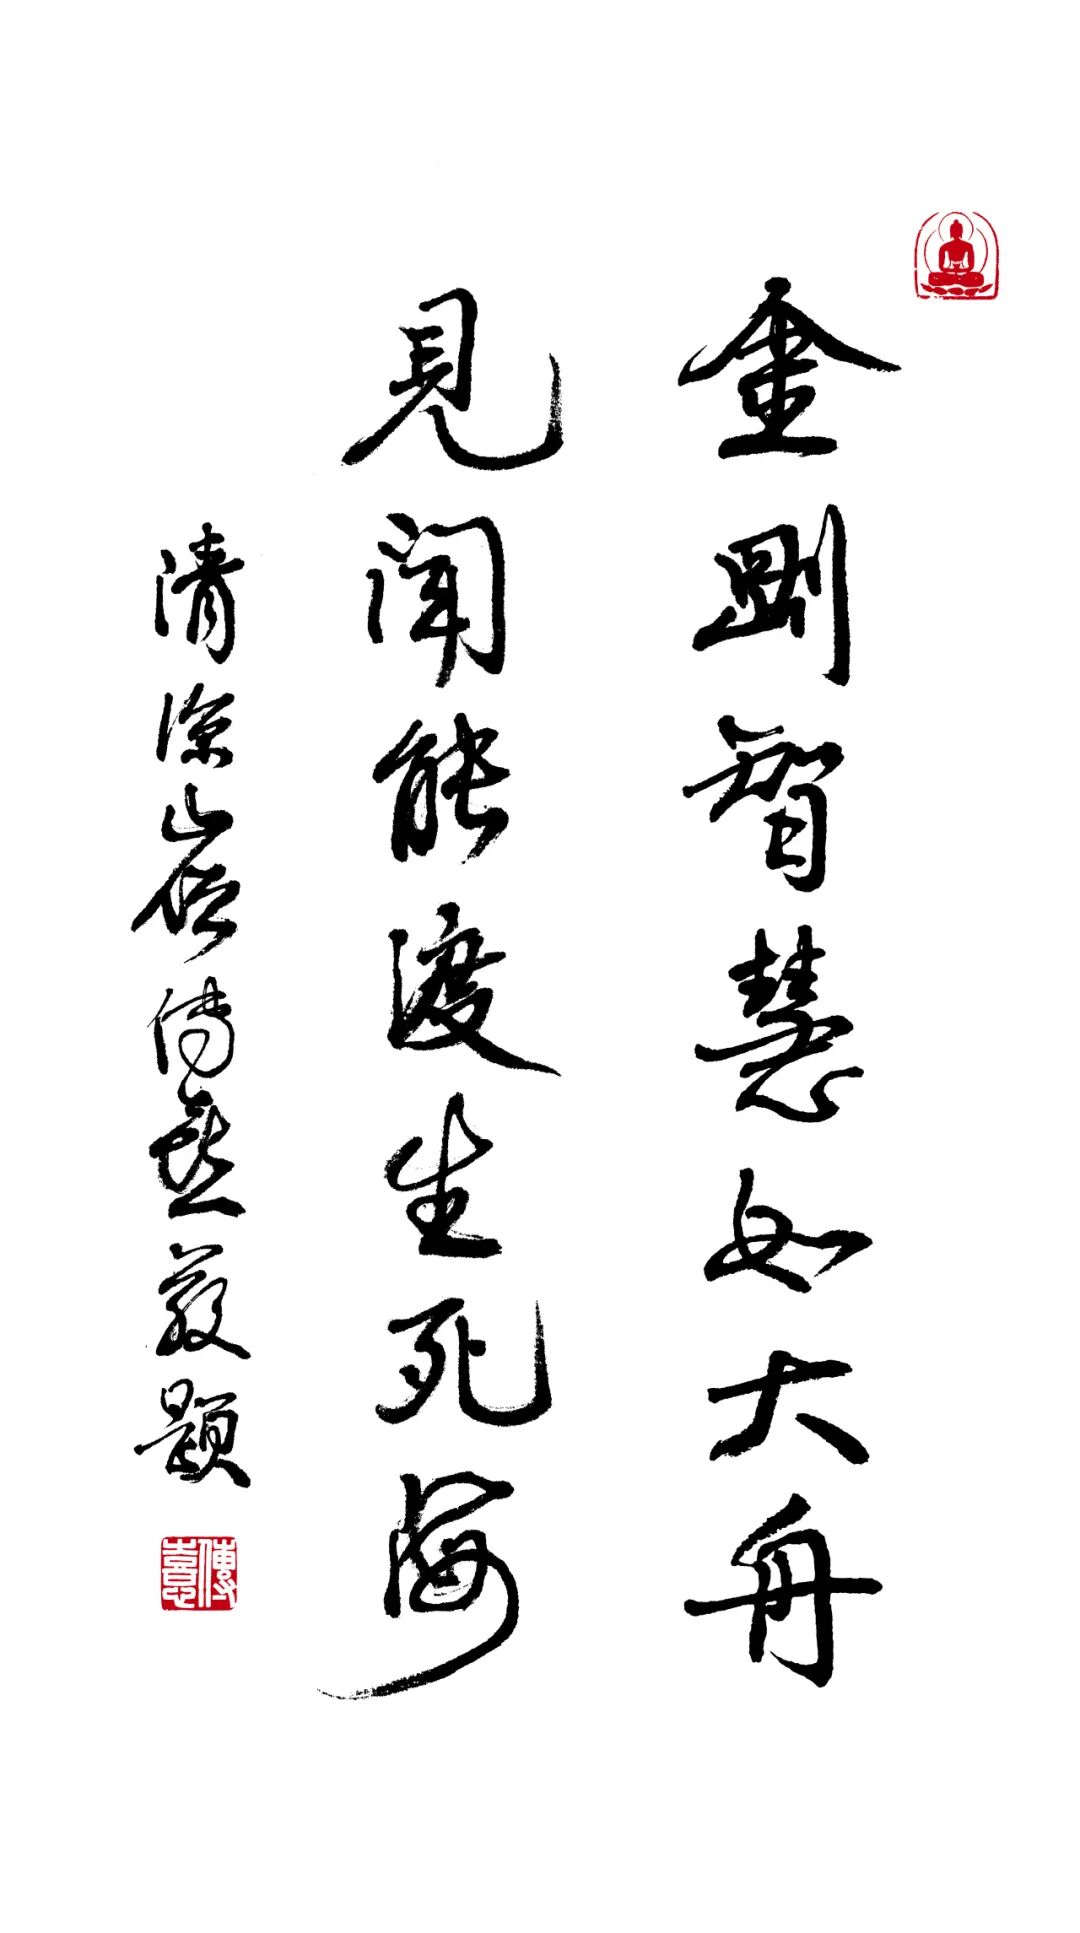 金剛智慧如大舟
見聞能渡生死海
清涼山傳喜敬題
傳憙